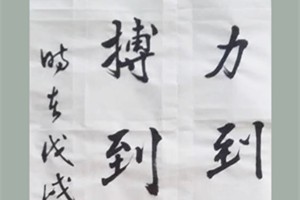 力到
搏到
時在戊戌